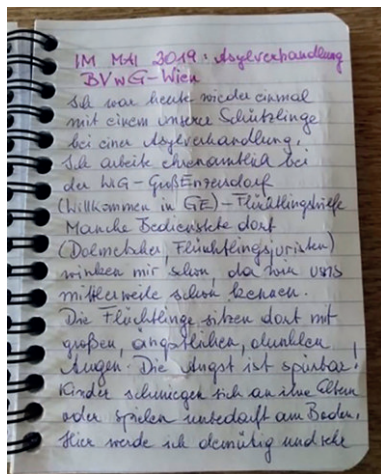 IM MAI 2019: Asylverhandlung
BVwG-Wien
Ich war heute wieder einmal
mit einem unserer Schützlinge
bei einer Asylverhandlung.
Ich arbeite ehrenamtlich bei
der WiG-GroßEnzersdorf
(Willkommen in GE)-Flüchtlingshilfe
Manche Bedienstete dort
(Dolmetscher, Flüchtlingsjuristen)
winken mir schon, da wir uns
mittlerweile schon kennen.
Die Flüchtlinge sitzen dort mit
großen, ängstlichen, dunklen
Augen. Die Angst ist spürbar!
Kinder schmiegen sich an ihre Eltern
oder spielen unbedarft am Boden.
Hier werde ich demütig und sehr